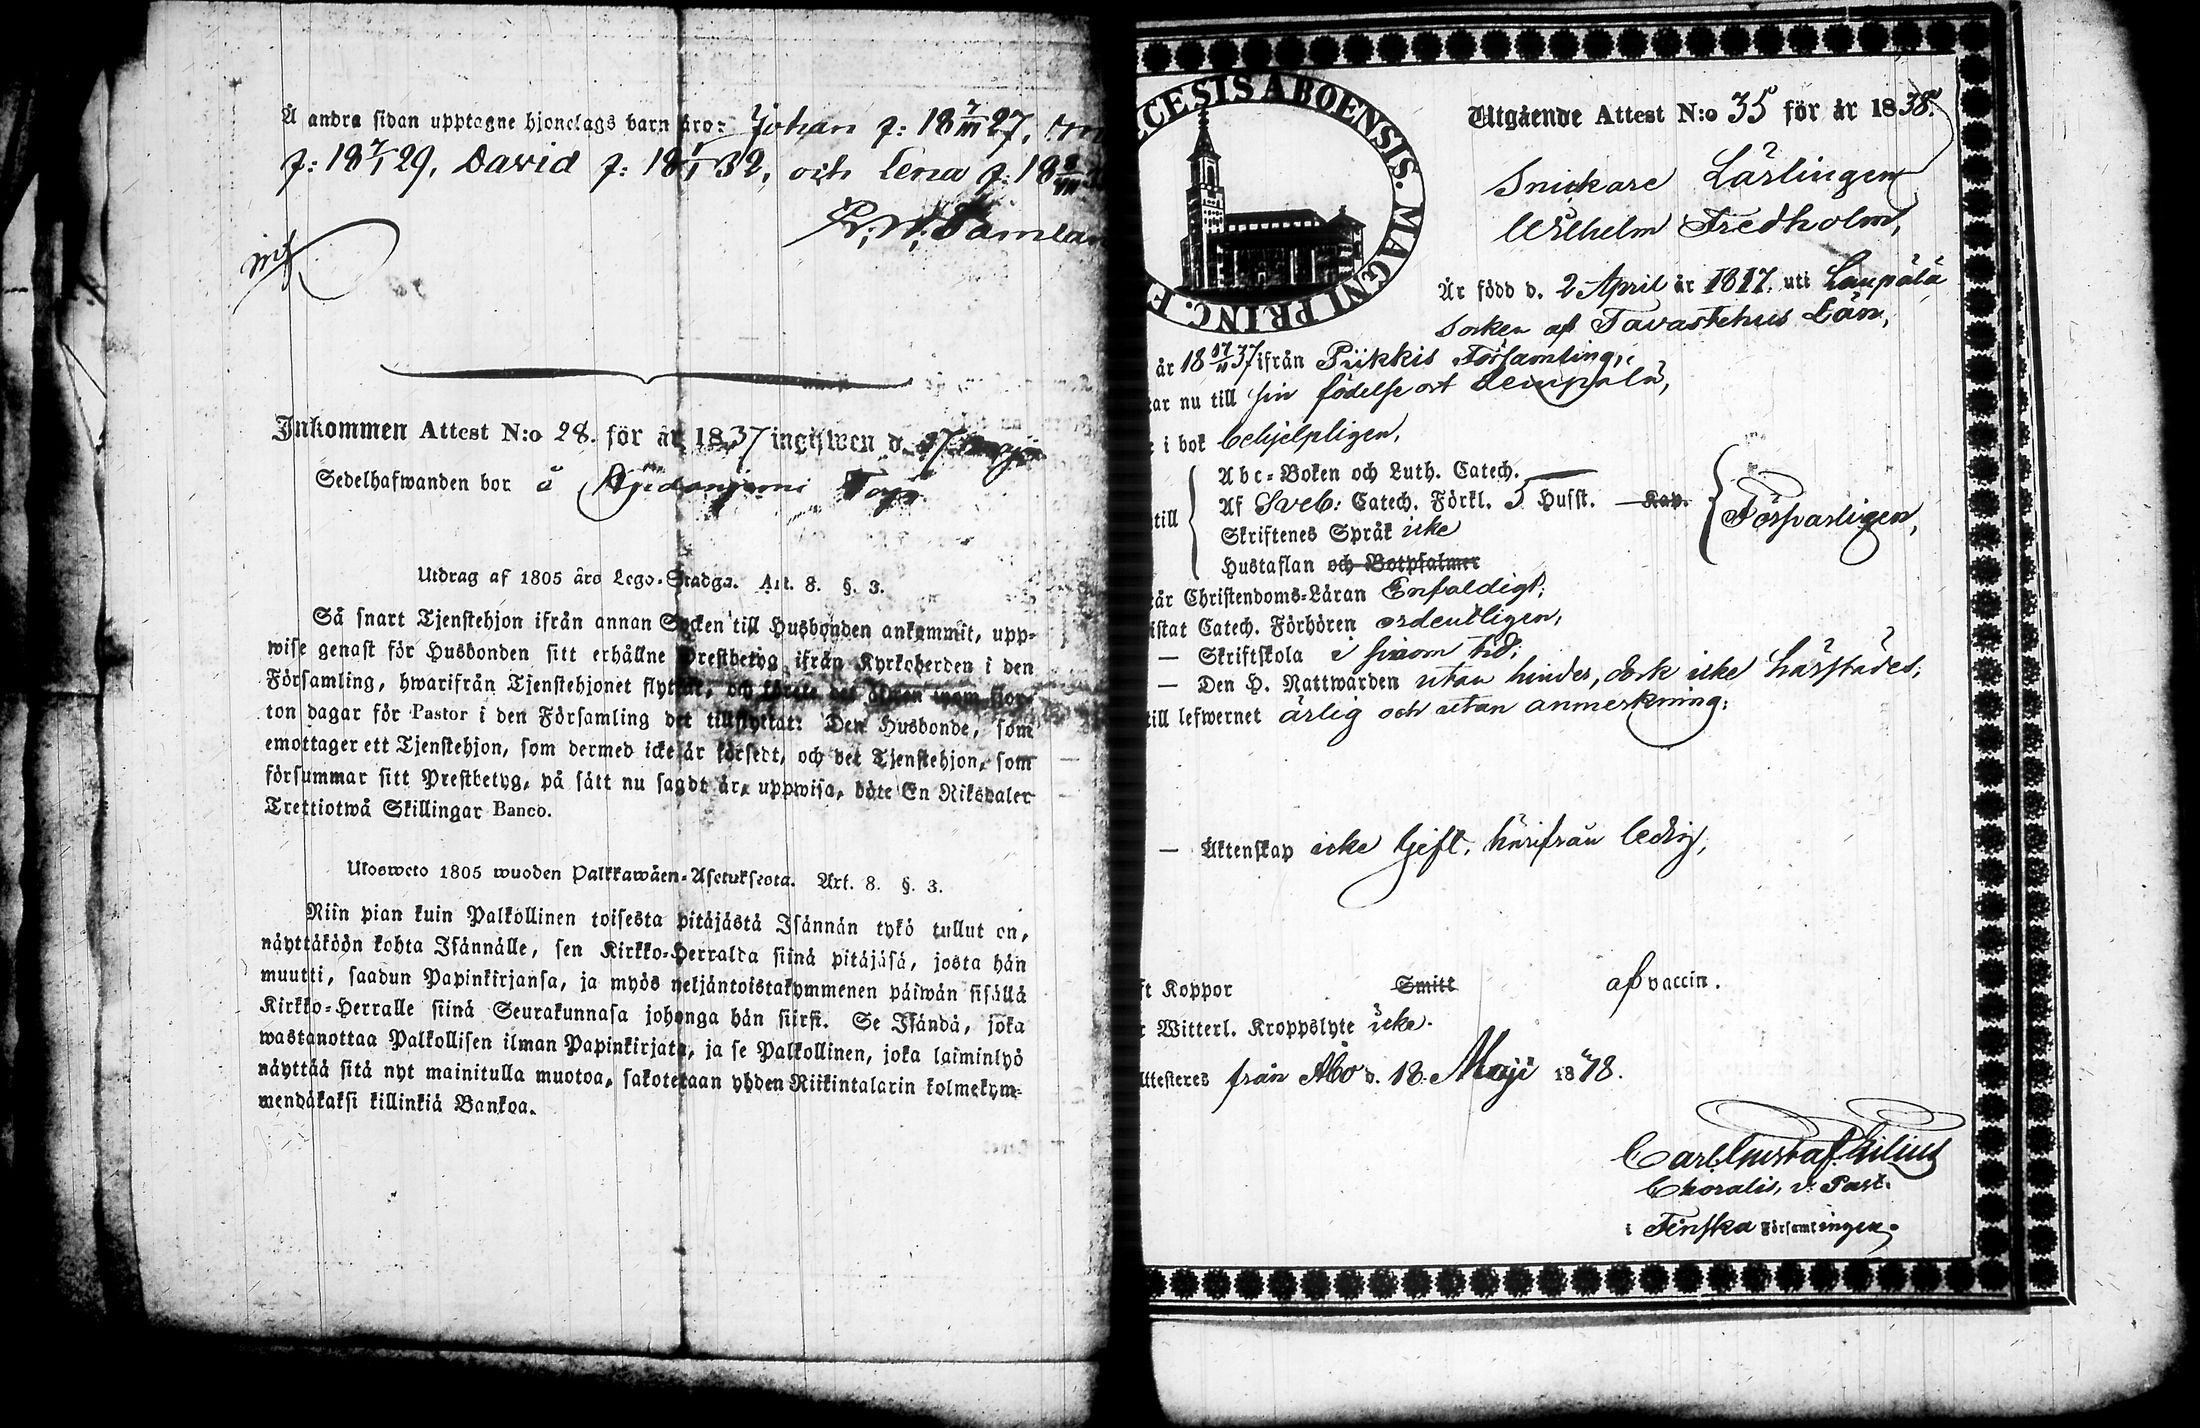 Å andra sidan upptagne hjonelags barn äro: Johan f: 18 7/III 27,
f: 18 7/1 29, David f: 18 1/1 32, och Lena f: 18
Inkommen Attest N:o 28. för år 1837 ingifwen d. 17
Sedelhafwanden bor å
Utdrag af 1805 års Lego-Stadga. Art. 8. §. 3.
Så snart Tjenstehjon ifrån annan Socken till Husbonden ankommit, upp-
wise genast för Husbonden sitt erhållne Prestbetyg ifrån Kyrkoherden i den
Församling, hwarifrån Tjenstehjonet flyttat, och förete det äfwen inom fjor-
ton dagar för Pastor i den Församling det tillflyttat: Den Husbonde, som
emottager ett Tjenstehjon, som dermed icke är försedt, och det Tjenstehjon, som
försummar sitt Prestbetyg, på sätt nu sagdt är, uppwisa, böte En Riksdaler
Trettiotwå Skillingar Banco.
Ulosweto 1805 wuoden Palkkawäen-Asetuksesta. Art. 8. §. 3.
Niin pian kuin Palkollinen toisesta pitäjästä Isännän tykö tullut on,
näyttäköön kohta Isännälle, sen Kirkko-Herralda siinä pitäjäsä, josta hän
muutti, saadun Papinkirjansa, ja myös neljäntoistakymmenen päiwän sisällä
Kirkko-Herralle siinä Seurakunnasa johonga hän siirsi. Se Isändä, joka
wastanottaa Palkollisen ilman Papinkirjata, ja se Palkollinen, joka laiminlyö
näyttää sitä nyt mainitulla muotoa, sakotetaan yhden Riikintalarin kolmekym-
mendäkaksi killinkiä Bankoa.
CESIS ABOENSIS. MAGNI PRINC. F
Utgående Attest N:o 35 för år 1838.
Snickare Lärlingen
Wilhelm Fredholm,
Är född d. 2 April år 1817. uti Lempälä
Socken af Tavastehus Län,
år 18 17/11 37 ifrån Piikkis Församling,
ar nu till sin födelse ort Lempälä,
i bok behjelpligen,
till
Abc-Boken och Luth. Catech.
Af Sveb: Catech. Förkl. 5 Hufst. Kap.
Skriftenes Språk icke
Hustaflan och Botpsalmer
Försvarligen,
år Christendoms-Läran Enfaldigt,
istat Catech. Förhören ordentligen,
— Skriftskola i sinom tid,
— Den H. Nattwarden utan hinder, dock icke härstädes,
till lefwernet ärlig och utan anmerkning:
— Äktenskap icke Gift, härifrån ledig,
ft Koppor Smitt af vaccin.
r Witterl. Kroppslyte icke.
Attesteres från Åbo d. 18. Maji 1838.
Carl Gustaf Kilius
Choralis, v. Past.
i Finska Församlingen.